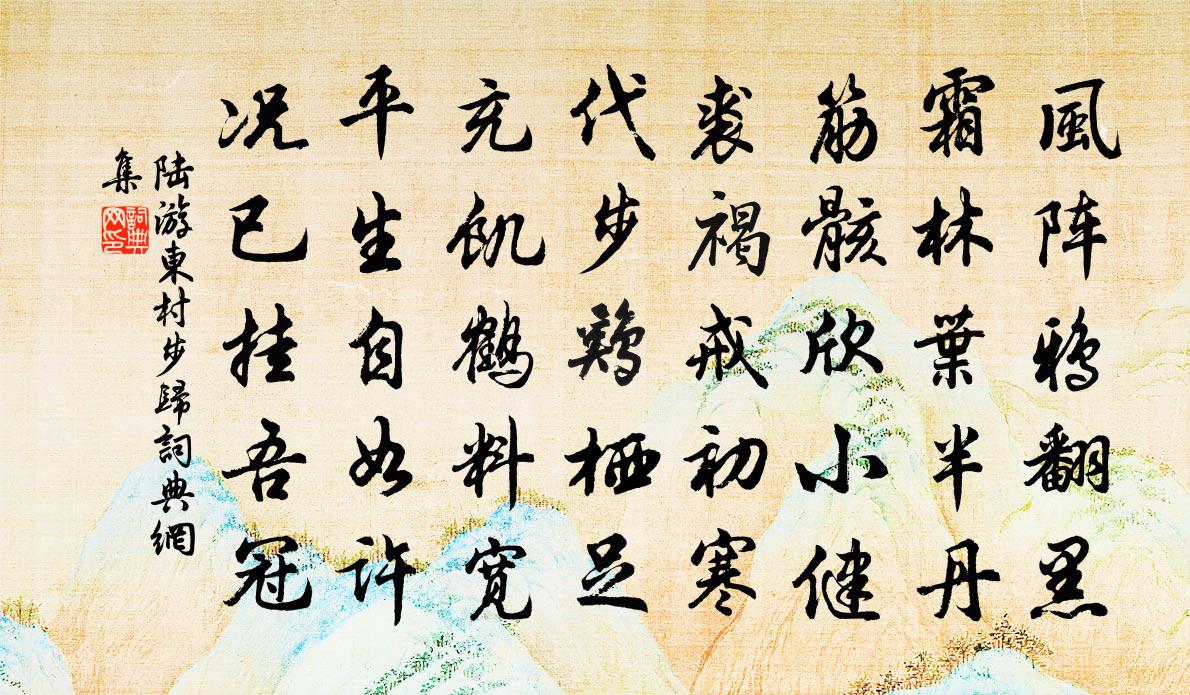 風阵鸦翻黑
霜林葉半丹
筋骸欣小健
裘褐戒初寒
代步鷄栖足
充飢鶴料寬
平生自如许
况已挂吾冠
陆游東村步歸詞典網
集
詞典
网印